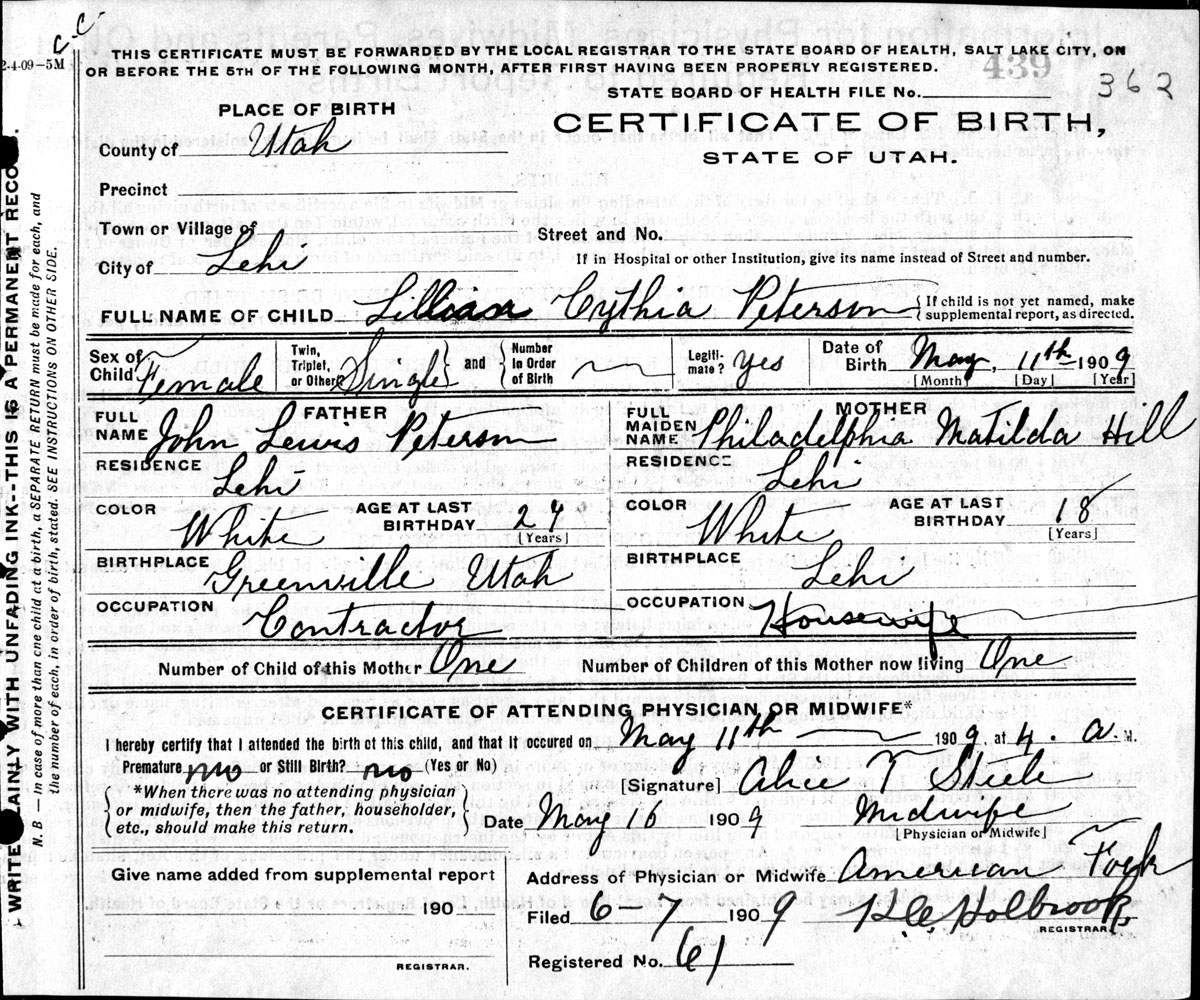 C-C
2-4-09-5M
THIS CERTIFICATE MUST BE FORWARDED BY THE LOCAL REGISTRAR TO THE STATE BOARD OF HEALTH, SALT LAKE CITY, ON
OR BEFORE THE 5TH OF THE FOLLOWING MONTH, AFTER FIRST HAVING BEEN PROPERLY REGISTERED.
439
STATE BOARD OF HEALTH FILE No. 362
PLACE OF BIRTH
CERTIFICATE OF BIRTH,
STATE OF UTAH.
County of Utah
Precinct
Town or Village of
Street and No.
City of Lehi
If in Hospital or other Institution, give its name instead of Street and number.
FULL NAME OF CHILD Lillian Cythia Peterson { If child is not yet named, make supplemental report, as directed.
Sex of Child Female Twin, Triplet, or Other? Single } and { Number in Order of Birth Legiti-mate? yes Date of Birth May, 11th 1909
[Month] [Day] [Year]
FATHER
FULL NAME John Lewis Peterson
RESIDENCE Lehi
COLOR White AGE AT LAST BIRTHDAY 24 [Years]
BIRTHPLACE Greenville Utah
OCCUPATION Contractor
MOTHER
FULL MAIDEN NAME Philadelphia Matilda Hill
RESIDENCE Lehi
COLOR White AGE AT LAST BIRTHDAY 18 [Years]
BIRTHPLACE Lehi
OCCUPATION Housewife
Number of Child of this Mother One Number of Children of this Mother now living One
CERTIFICATE OF ATTENDING PHYSICIAN OR MIDWIFE*
I hereby certify that I attended the birth of this child, and that it occured on May 11th 1909, at 4. a. M.
Premature no or Still Birth? no (Yes or No)
*When there was no attending physician
or midwife, then the father, householder,
etc., should make this return.
[Signature] Alice Steele
Date May 1909 Midwife
[Physician or Midwife]
Give name added from supplemental report
190
REGISTRAR.
Address of Physician or Midwife American Fork
Filed 6-7 1909 Holbrook
REGISTRAR.
Registered No. 61
WRITE PLAINLY WITH UNFADING INK--THIS IS A PERMANENT RECO
N. B — in case of more than one child at a birth, a SEPARATE RETURN must be made for each, and
the number of each, in order of birth, stated. SEE INSTRUCTIONS ON OTHER SIDE.